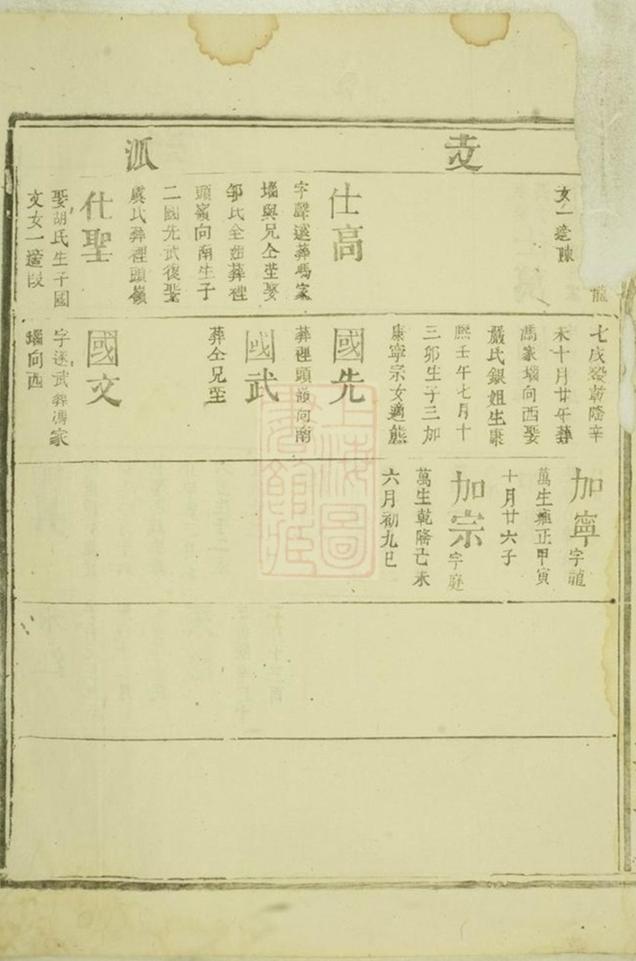 支派
文一適陳
仕高
字聲遂葬馮家
墈與兄仝塋娶
鄒氏仝茔葬裡
頭嶺向南生子
二國先武復娶
虞氏葬裡頭嶺
仕聖
娶胡氏生子國
文女一適段
龍
七戌歿乾隆辛
未十月廿午葬
馮家墈向西娶
嚴氏銀姐生康
熙壬午七月十
三卯生子三加
康寧宗女適熊
國先
葬裡頭嶺向南
國武
葬仝兄塋
國文
字遂武葬馮家
墈向西
加寧字龍
萬生雍正甲寅
十月廿六子
加宗字庭
萬生乾隆己未
六月初九巳